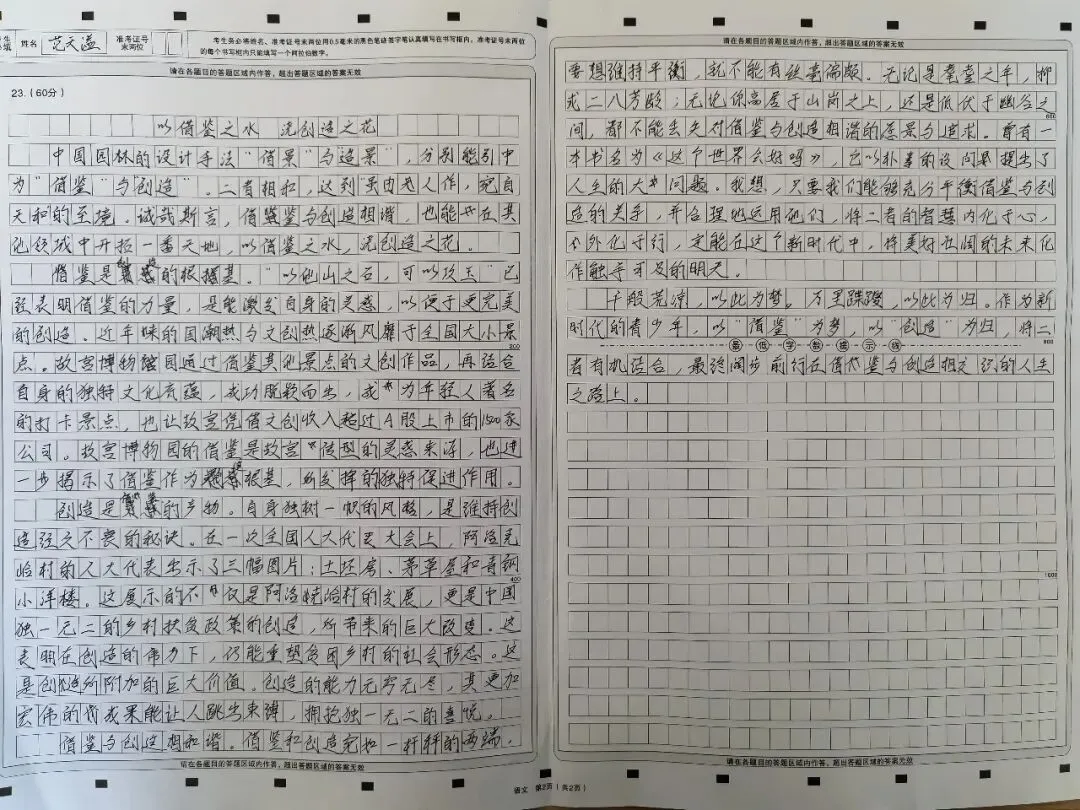 生
必填
姓名
范天溢
准考证号
末两位
考生务必将姓名、准考证号末两位用0.5毫米的黑色笔迹签字笔认真填写在书写框内，准考证号末两位
的每个书写框内只能填写一个阿拉伯数字。
请在各题目的答题区域内作答，超出答题区域的答案无效
23.（60分）
以借鉴之水 浇创造之花
中国园林的设计手法“借景”与“造景”，分别能引申
为“借鉴”与“创造”。二者相和，达到“虽由人作，宛自
天和”的至境。诚哉斯言，借鉴与创造相谐，也能在其
他领域中开拓一番天地，以借鉴之水，浇创造之花。
借鉴是创造的根基。“以他山之石，可以攻玉”已
经表明借鉴的力量，是能激发自身的灵感，以便于更完美
的创造。近年来的国潮热与文创热逐渐风靡于全国大小景
点。故宫博物园通过借鉴其他景点的文创作品，再结合
200
自身的独特文化底蕴，成功脱颖而出，成为年轻人著名
的打卡景点，也让故宫凭借文创收入超过A股上市的1500家
公司。故宫博物园的借鉴是故宫转型的灵感来源，也进
一步揭示了借鉴作为创造根基，所发挥的独特促进作用。
创造是借鉴的产物。自身独树一帜的风格，是维持创
造经久不衰的秘诀。在一次全国人大代表大会上，阿洛克
哈村的人大代表出示了三幅图片：土坯房、茅草屋和青钢
400
小洋楼。这展示的不仅是阿洛克哈村的发展，更是中国
独一无二的乡村扶贫政策的创造，所带来的巨大改变。这
表明在创造的伟力下，仍能重塑贫困乡村的社会形态。这
是创造所附加的巨大价值。创造的能力无穷无尽，其更加
宏伟的成果能让人跳出束缚，拥抱独一无二的喜悦。
借鉴与创造相和谐。借鉴和创造宛如一杆秤的两端，
请在各题目的答题区域内作答，超出答题区域的答案无效
语文 第2页（共2页）
请在各题目的答题区域内作答，超出答题区域的答案无效
要想维持平衡，就不能有丝毫偏颇。无论是耄耋之年，抑
或二八芳龄；无论你高居于山岗之上，还是低伏于幽谷之
600
间，都不能丢失对借鉴与创造相谐的愿景与追求。曾有一
本书名为《这个世界会好吗》，它以朴素的设问提出了
人生的大问题。我想，只要我们能够充分平衡借鉴与创
造的关系，并合理地运用他们，将二者的智慧内化于心，
外化于行，定能在这个新时代中，将美好壮阔的未来化
作触手可及的明天。
千般荒凉，以此为梦。万里蹀躞，以此为归。作为新
时代的青少年，以“借鉴”为梦，以“创造”为归，将二
最低字数提示线
800
者有机结合，最终阔步前行在借鉴与创造相交织的人生
之路上。
1000
请在各题目的答题区域内作答，超出答题区域的答案无效